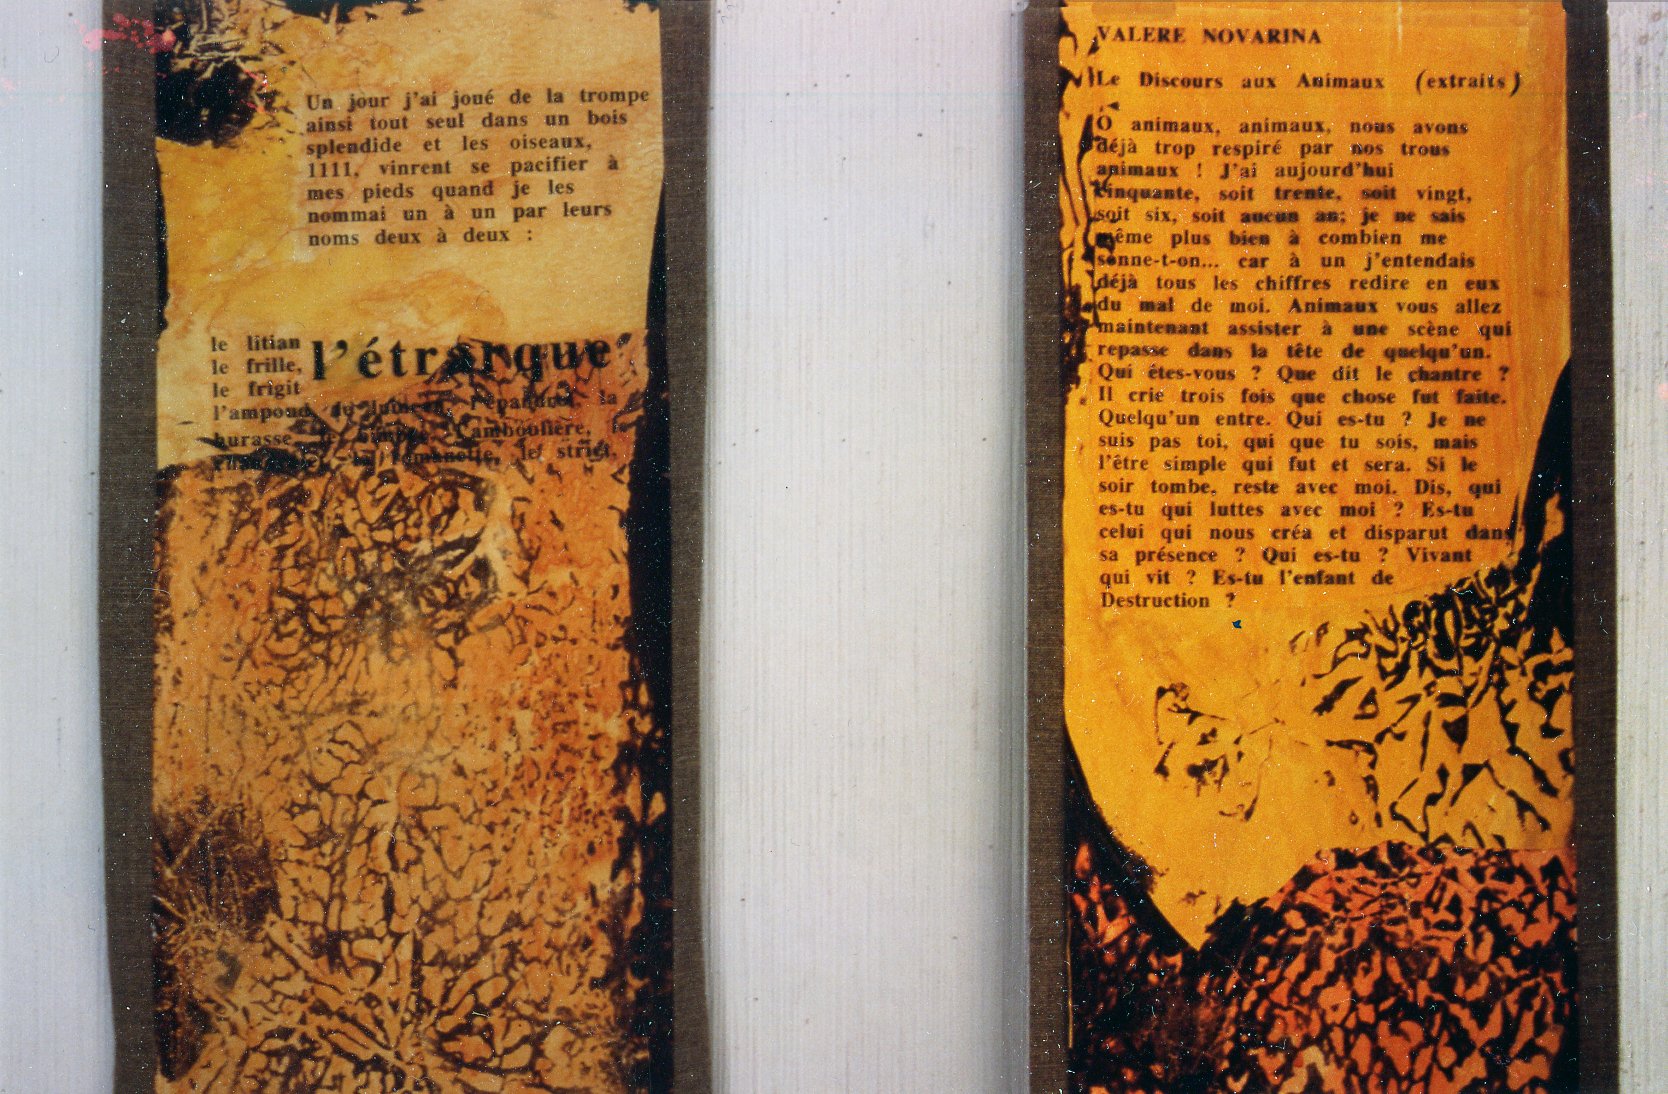 Un jour j'ai joué de la trompe
ainsi tout seul dans un bois
splendide et les oiseaux,
1111, vinrent se pacifier à
mes pieds quand je les
nommai un à un par leurs
noms deux à deux :
le litian
le frille,
le frigit
l'étrarque
la
le strict,
VALERE NOVARINA
Le Discours aux Animaux (extraits)
Ô animaux, animaux, nous avons
déjà trop respiré par nos trous
animaux ! J'ai aujourd'hui
cinquante, soit trente, soit vingt,
soit six, soit aucun an; je ne sais
même plus bien à combien me
sonne-t-on... car à un j'entendais
déjà tous les chiffres redire en eux
du mal de moi. Animaux vous allez
maintenant assister à une scène qui
repasse dans la tête de quelqu'un.
Qui êtes-vous ? Que dit le chantre ?
Il crie trois fois que chose fut faite.
Quelqu'un entre. Qui es-tu ? Je ne
suis pas toi, qui que tu sois, mais
l'être simple qui fut et sera. Si le
soir tombe, reste avec moi. Dis, qui
es-tu qui luttes avec moi ? Es-tu
celui qui nous créa et disparut dans
sa présence ? Qui es-tu ? Vivant
qui vit ? Es-tu l'enfant de
Destruction ?